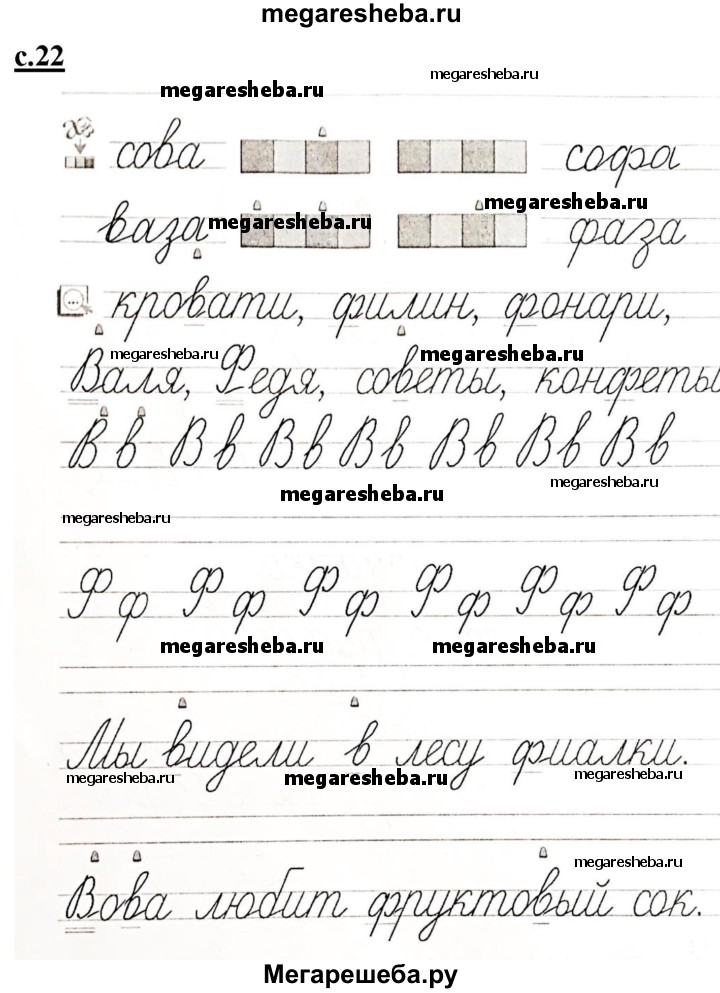 megaresheba.ru
с.22
megaresheba.ru
megaresheba.ru
сова софа
megaresheba.ru
ваза фаза
megaresheba.ru
кровати, филин, фонари,
megaresheba.ru megaresheba.ru
Валя, Федя, советы, конфеты
В в В в В в В в В в В в В в
megaresheba.ru
megaresheba.ru
megaresheba.ru
Ф ф Ф ф Ф ф Ф ф Ф ф Ф ф
megaresheba.ru megaresheba.ru
Мы видели в лесу фиалки.
megaresheba.ru megaresheba.ru megaresheba.ru
megaresheba.ru
Вова любит фруктовый сок.
Мегарешеба.ру